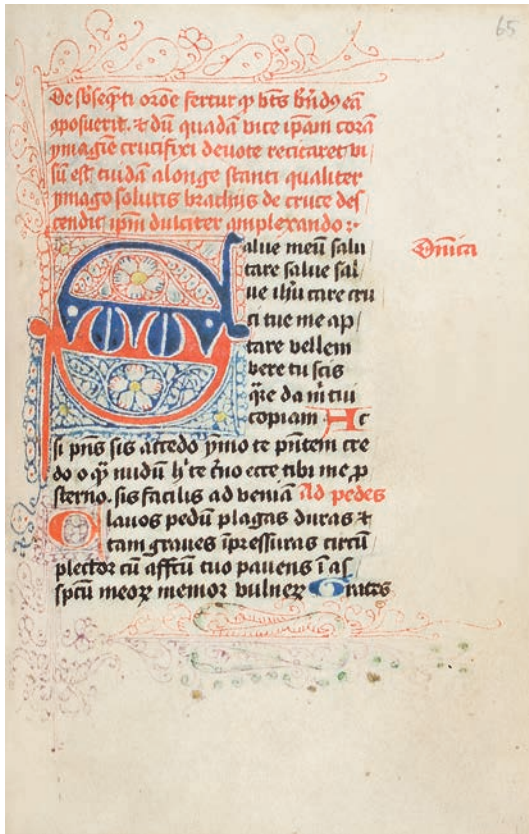 65
De sbseqēti orōe fertur ꝙ bt̄s br̄ndꝰ eā
ꝯposuerit. ⁊ dū quadā vice ip̄am corā
ymagīe crucifixi devote recitaret vi
sū est cuidā alonge stanti qualiter
ymago solutis brachiis de cruce des
cendit ip̄m dulciter amplexando :
Salue meū salu
tare salue sal
ue ih̄u care cru
ci tue me ap
tare vellem
vere tu scis
q̄re da m̄ tui
copiam Ac
si p̄ns sis accedo ymo te p̄ntem cre
do o qͣ nudū h̓ te c̄no ecce tibi me ꝓ
sterno. sis facilis ad veniā Ad pedes
Clavos pedū plagas duras ⁊
tam graves īpressuras circū
plector cū affc̄u tuo pavens ī as
spc̄u meoꝝ memor vulneꝝ Grates
Dn̄ica